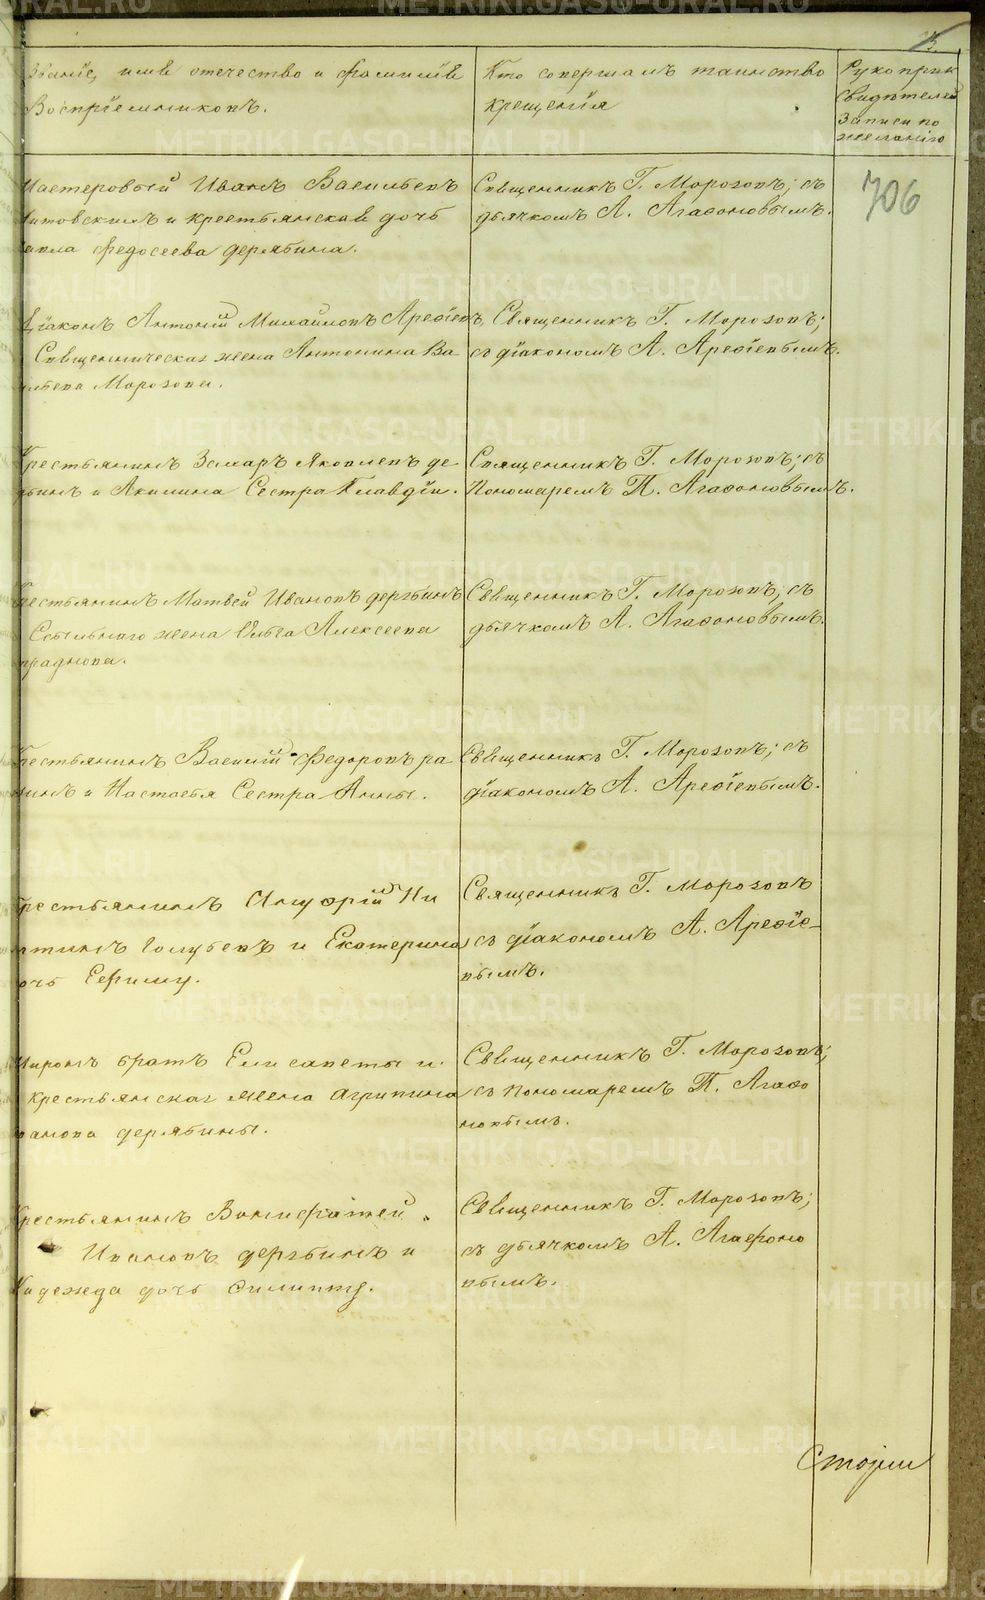 Званіе, имя отечество и фамилія
Воспріемниковъ.
Кто совершалъ таинство
крещенія
Рукоприк
Свидѣтелей
Записи по
желанію
706
Мастеровый Иванъ Васильевъ
и крестьянская дочь
Федосеева дерябина.
Священникъ Г. Морозовъ; съ
дьячкомъ А. Агафоновымъ.
Діаконъ Антоній Михайловъ Арефіевъ
Священническая жена Антонина Ва-
ильева Морозова.
Священникъ Г. Морозовъ;
съ діакономъ А. Арефіевымъ.
Крестьянинъ Захаръ Яковлевъ де-
бинъ и Акилина Сестра Клавдіи.
Священникъ Г. Морозовъ; съ
Пономаремъ П. Агафоновымъ.
Крестьянинъ Матвей Ивановъ дерябинъ
жена Ольга Алексеева
Священникъ Г. Морозовъ; съ
дьячкомъ А. Агафоновымъ.
Крестьянинъ Василій Федоровъ ра-
инъ и Настасья Сестра Анны.
Священникъ Г. Морозовъ; съ
діакономъ А. Арефіевымъ.
Крестьянинъ Онуфрій Ни
итинъ Голубевъ и Екатерина
очь Ефиму.
Священникъ Г. Морозовъ
съ діакономъ А. Арефіе-
вымъ.
Миронъ братъ Елисаветы и
крестьянская жена Агрипина
ванова дерябины.
Священникъ Г. Морозовъ;
съ пономаремъ П. Агафо
новымъ.
Крестьянинъ Вонифатей
Ивановъ дерябинъ и
Надежда дочь Филиппу.
Священникъ Г. Морозовъ;
съ дьячкомъ А. Агафоно
вымъ.
METRIKI.GASO-URAL.RU